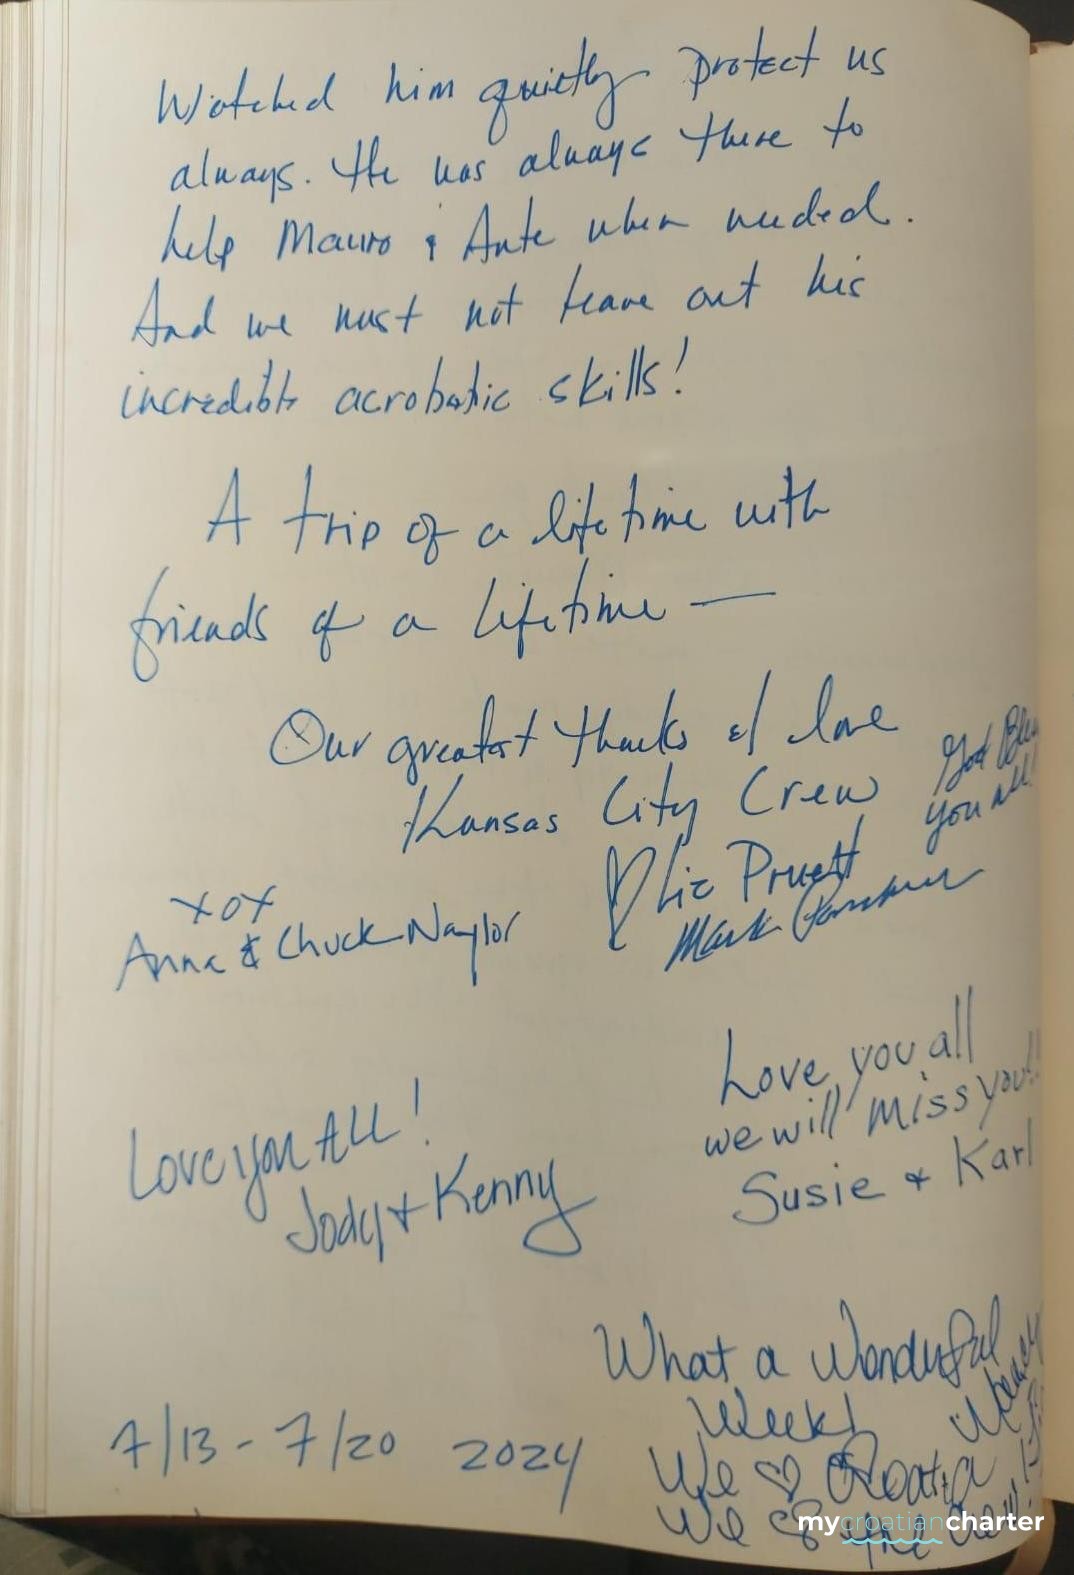 Watched him quietly protect us
always. He was always there to
help Mauro & Ante when needed.
And we must not leave out his
incredible acrobatic skills!
A trip of a lifetime with
friends of a lifetime —
Our greatest thanks & love
Kansas City Crew
God Bless
you all!
♡ Liz Pruett
Mark
xox
Anna & Chuck Naylor
Love you all
we will miss you!!
Susie + Karl
Love you ALL!
Jody + Kenny
What a Wonderful
Week!
We ♡ Croatia
We ♡ the crew!
7/13 - 7/20 2024
mycroatiancharter